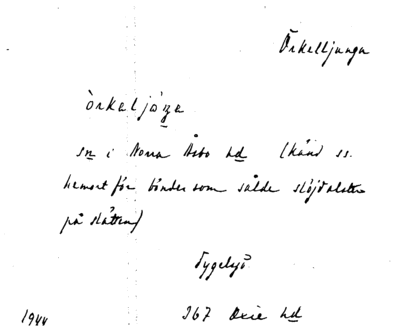 Örkelljunga
òrkaljóŋa
sn i Norra Åsbo hd (känd ss.
hemort för bönder som sålde slöjdalster
på slätten)
Tygelsjö
1944 267 Oxie hd